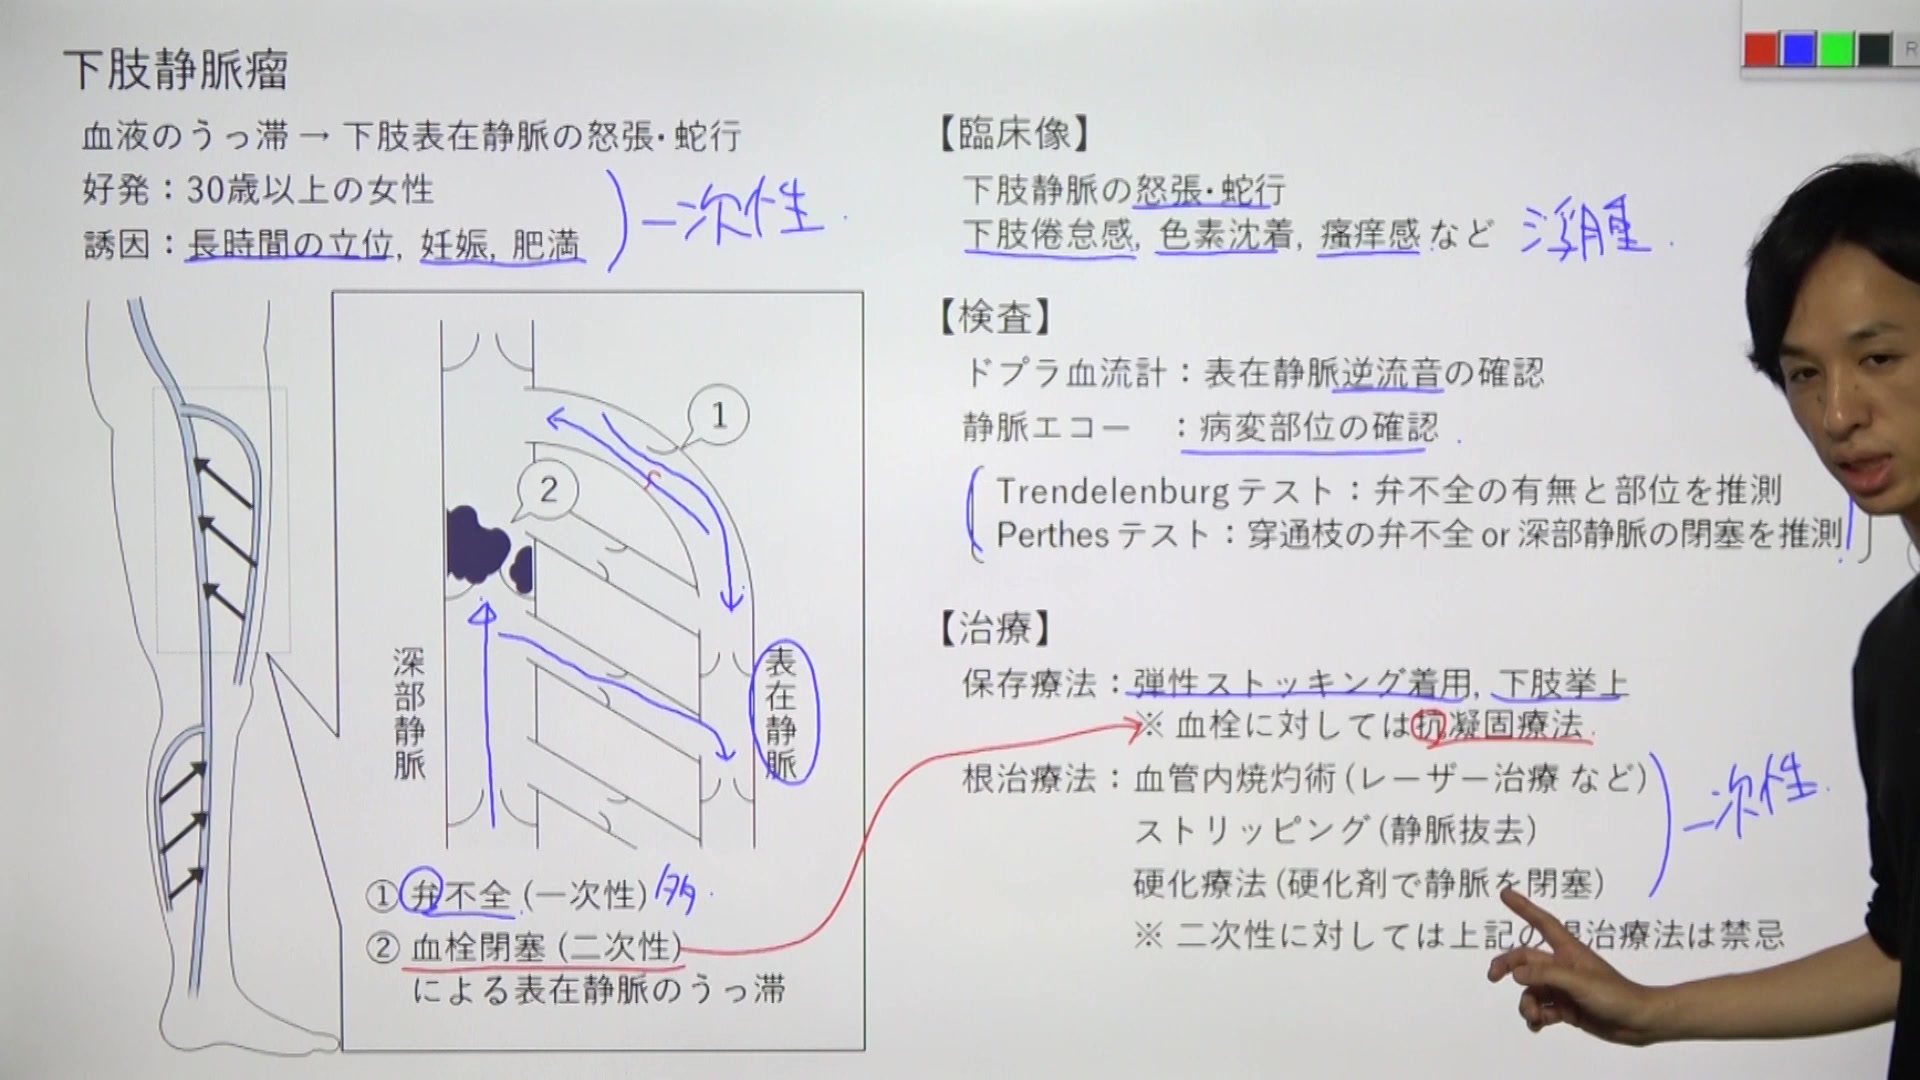 下肢静脈瘤
血液のうっ滞 → 下肢表在静脈の怒張・蛇行
好発：30歳以上の女性
誘因：長時間の立位, 妊娠, 肥満
一次性
1
2
深部静脈
表在静脈
① 弁不全 (一次性) 多
② 血栓閉塞 (二次性)
による表在静脈のうっ滞
【臨床像】
下肢静脈の怒張・蛇行
下肢倦怠感, 色素沈着, 瘙痒感 など 浮腫
【検査】
ドプラ血流計：表在静脈逆流音の確認
静脈エコー ：病変部位の確認
Trendelenburg テスト：弁不全の有無と部位を推測
Perthes テスト：穿通枝の弁不全 or 深部静脈の閉塞を推測
【治療】
保存療法：弾性ストッキング着用, 下肢挙上
※ 血栓に対しては抗凝固療法
根治療法：血管内焼灼術 (レーザー治療 など)
ストリッピング (静脈抜去)
硬化療法 (硬化剤で静脈を閉塞)
一次性
※ 二次性に対しては上記の根治療法は禁忌
R